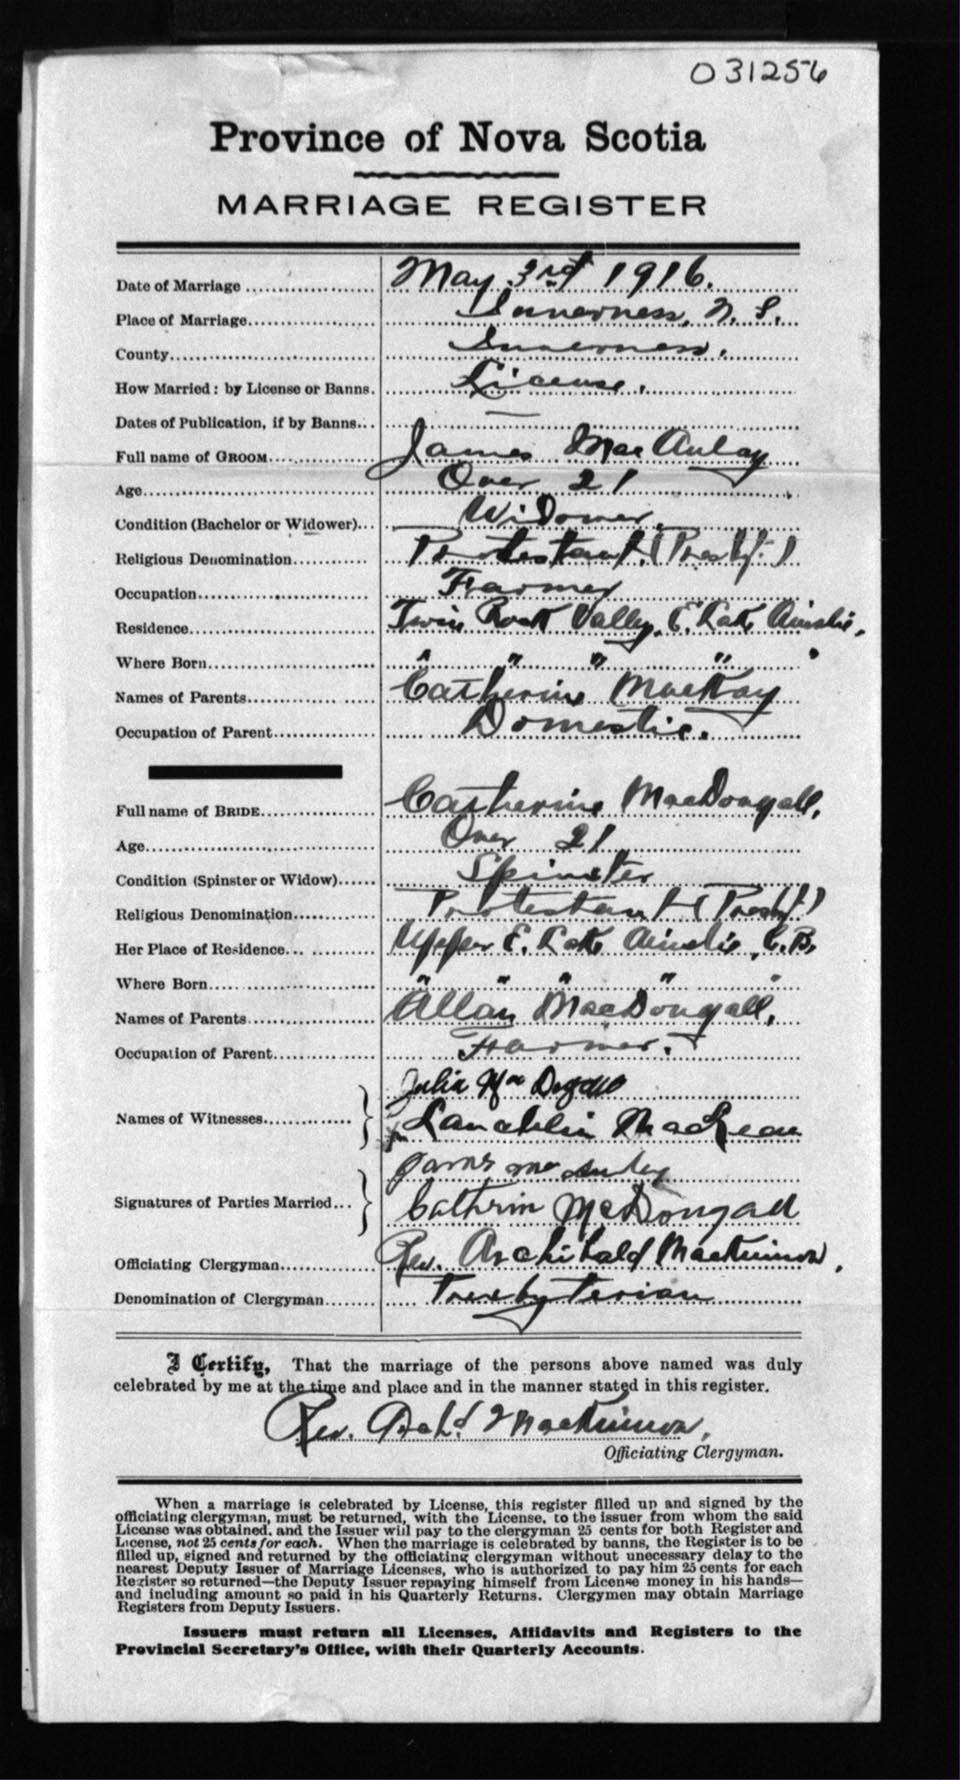 031256
Province of Nova Scotia
MARRIAGE REGISTER
Date of Marriage May 3rd 1916.
Place of Marriage Inverness, N. S.
County Inverness.
How Married: by License or Banns. License.
Dates of Publication, if by Banns —
Full name of GROOM James MacAulay
Age Over 21
Condition (Bachelor or Widower) Widower.
Religious Denomination Protestant (Presbyt.)
Occupation Farmer
Residence Twin Rock Valley, E. Lake Ainslie,
Where Born " " " " "
Names of Parents Catherine MacKay
Occupation of Parent Domestic.
Full name of BRIDE Catherine MacDougall,
Age Over 21
Condition (Spinster or Widow) Spinster
Religious Denomination Protestant (Presbyt.)
Her Place of Residence Upper E. Lake Ainslie, C.B.
Where Born " " " " "
Names of Parents Allan MacDougall,
Occupation of Parent Farmer.
Julia
Names of Witnesses Lauchlin MacLean
James
Signatures of Parties Married Cathrin McDongall
Officiating Clergyman Rev. Archibald MacKinnon,
Denomination of Clergyman Presbyterian
I Certify, That the marriage of the persons above named was duly
celebrated by me at the time and place and in the manner stated in this register.
Rev. Archd. MacKinnon,
Officiating Clergyman.
When a marriage is celebrated by License, this register filled up and signed by the
officiating clergyman, must be returned, with the License, to the issuer from whom the said
License was obtained, and the Issuer will pay to the clergyman 25 cents for both Register and
License, not 25 cents for each. When the marriage is celebrated by banns, the Register is to be
filled up, signed and returned by the officiating clergyman without unecessary delay to the
nearest Deputy Issuer of Marriage Licenses, who is authorized to pay him 25 cents for each
Register so returned—the Deputy Issuer repaying himself from License money in his hands—
and including amount so paid in his Quarterly Returns. Clergymen may obtain Marriage
Registers from Deputy Issuers.
Issuers must return all Licenses, Affidavits and Registers to the
Provincial Secretary's Office, with their Quarterly Accounts.